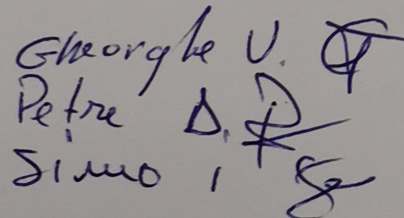 Gheorghe V.
Petre D.
Simo,